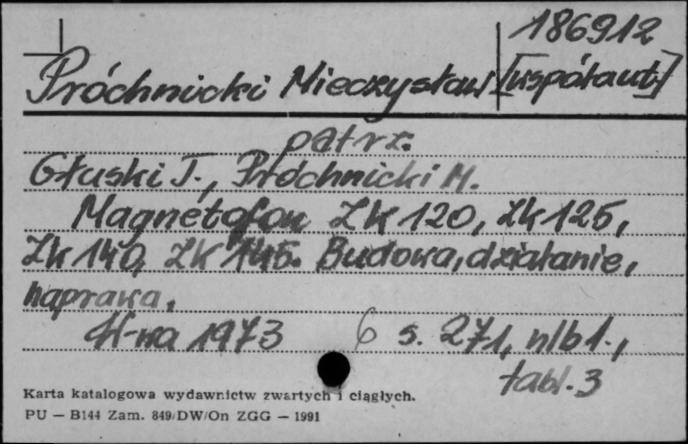 186912
Próchnicki Mieczysław [współaut.]
patrz.
Głuski J., Próchnicki M.
Magnetofon ZK 120, ZK 125,
ZK 140, ZK 145. Budowa, działanie,
naprawa.
W-wa 1973 6 s. 271, nlb 1.,
tabl. 3
Karta katalogowa wydawnictw zwartych i ciągłych.
PU — B144 Zam. 849/DW/On ZGG — 1991